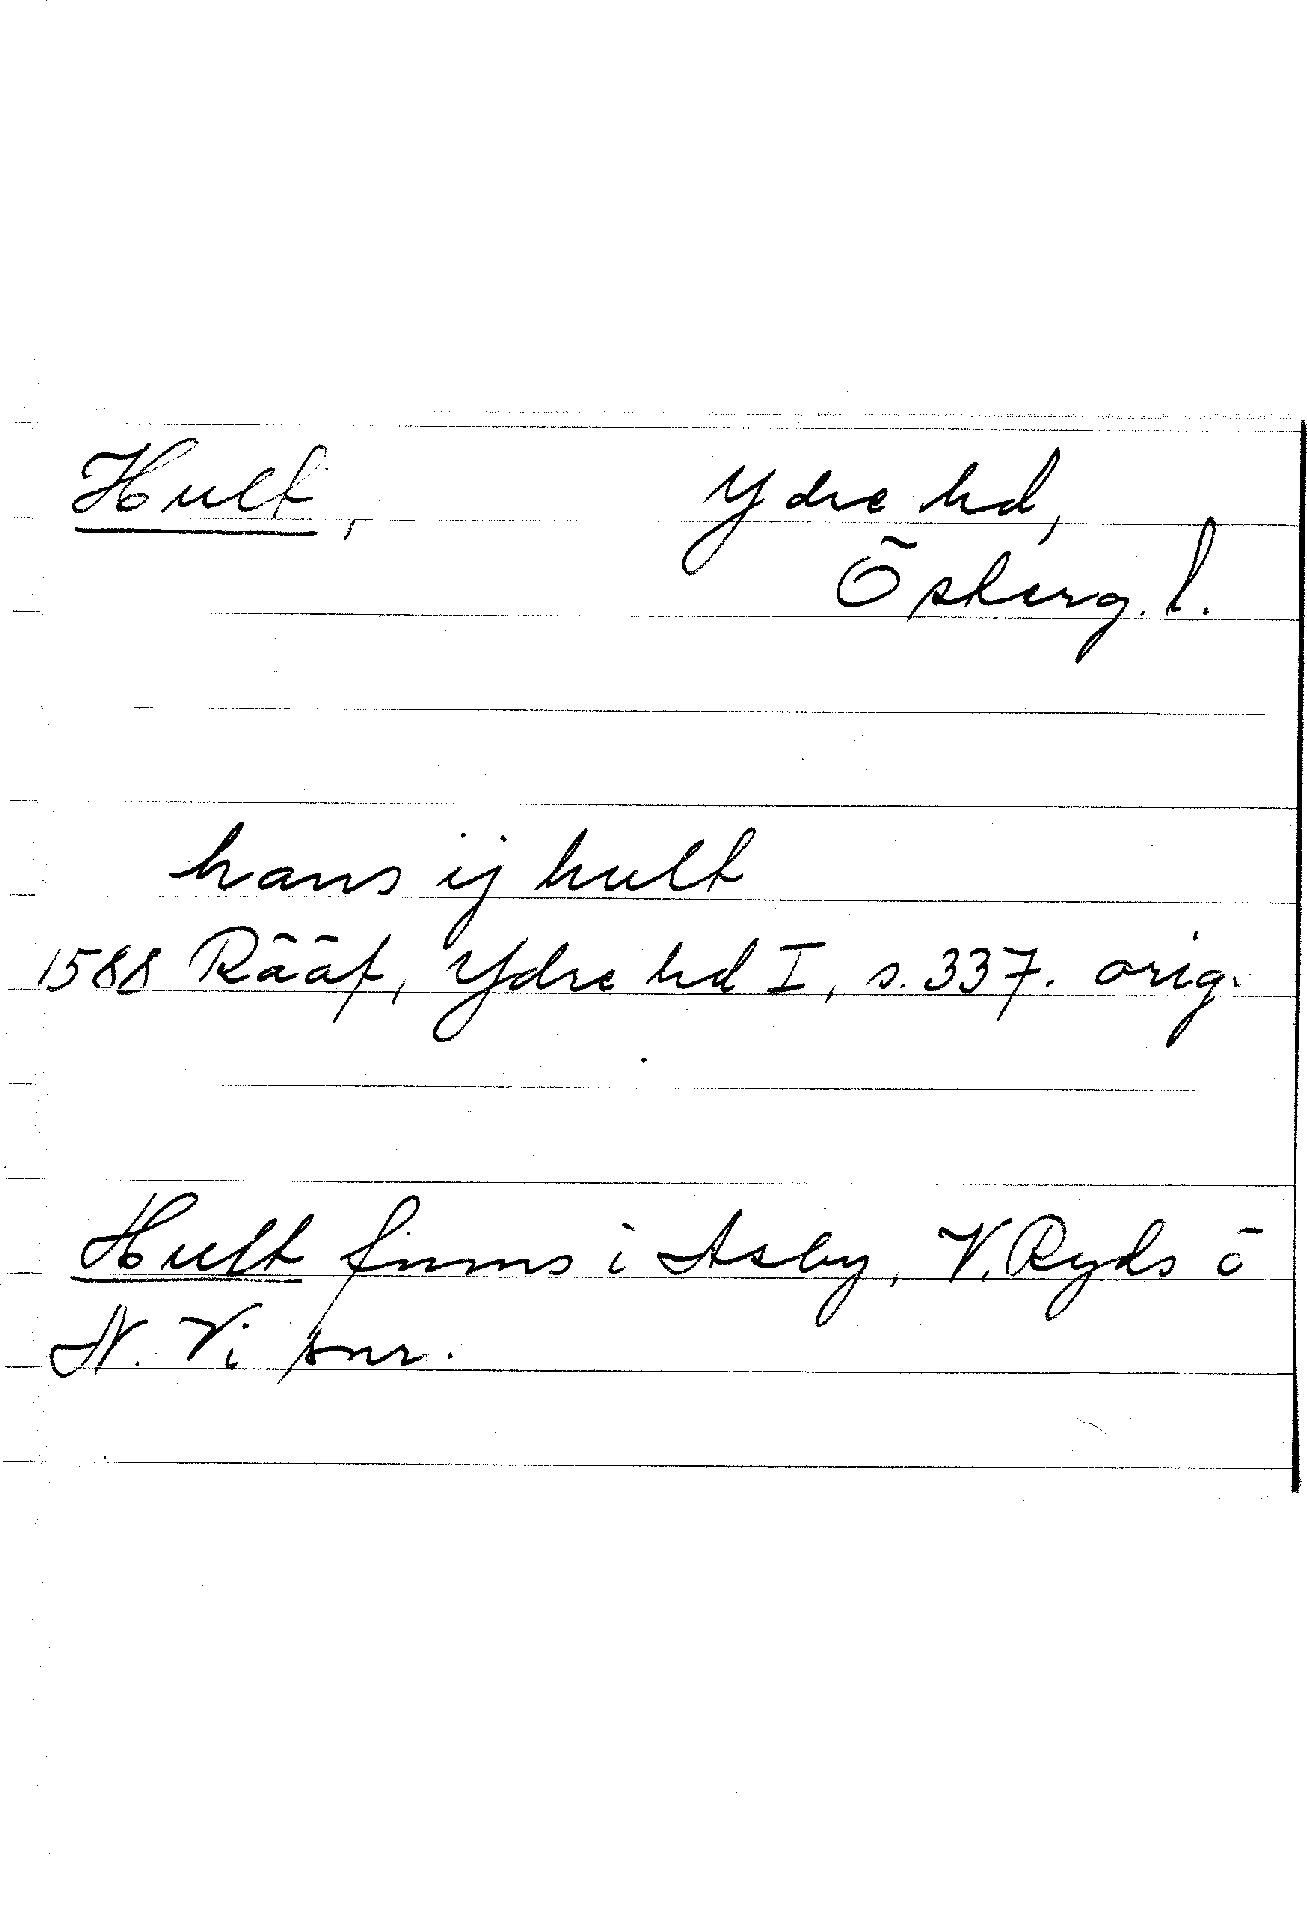 Hult, Ydre hd,
Österg. l.
hans ij hult
1588 Rääf, Ydre hd I, s. 337. orig.
Hult finns i Asby, V. Ryds o
N. Vi snr.